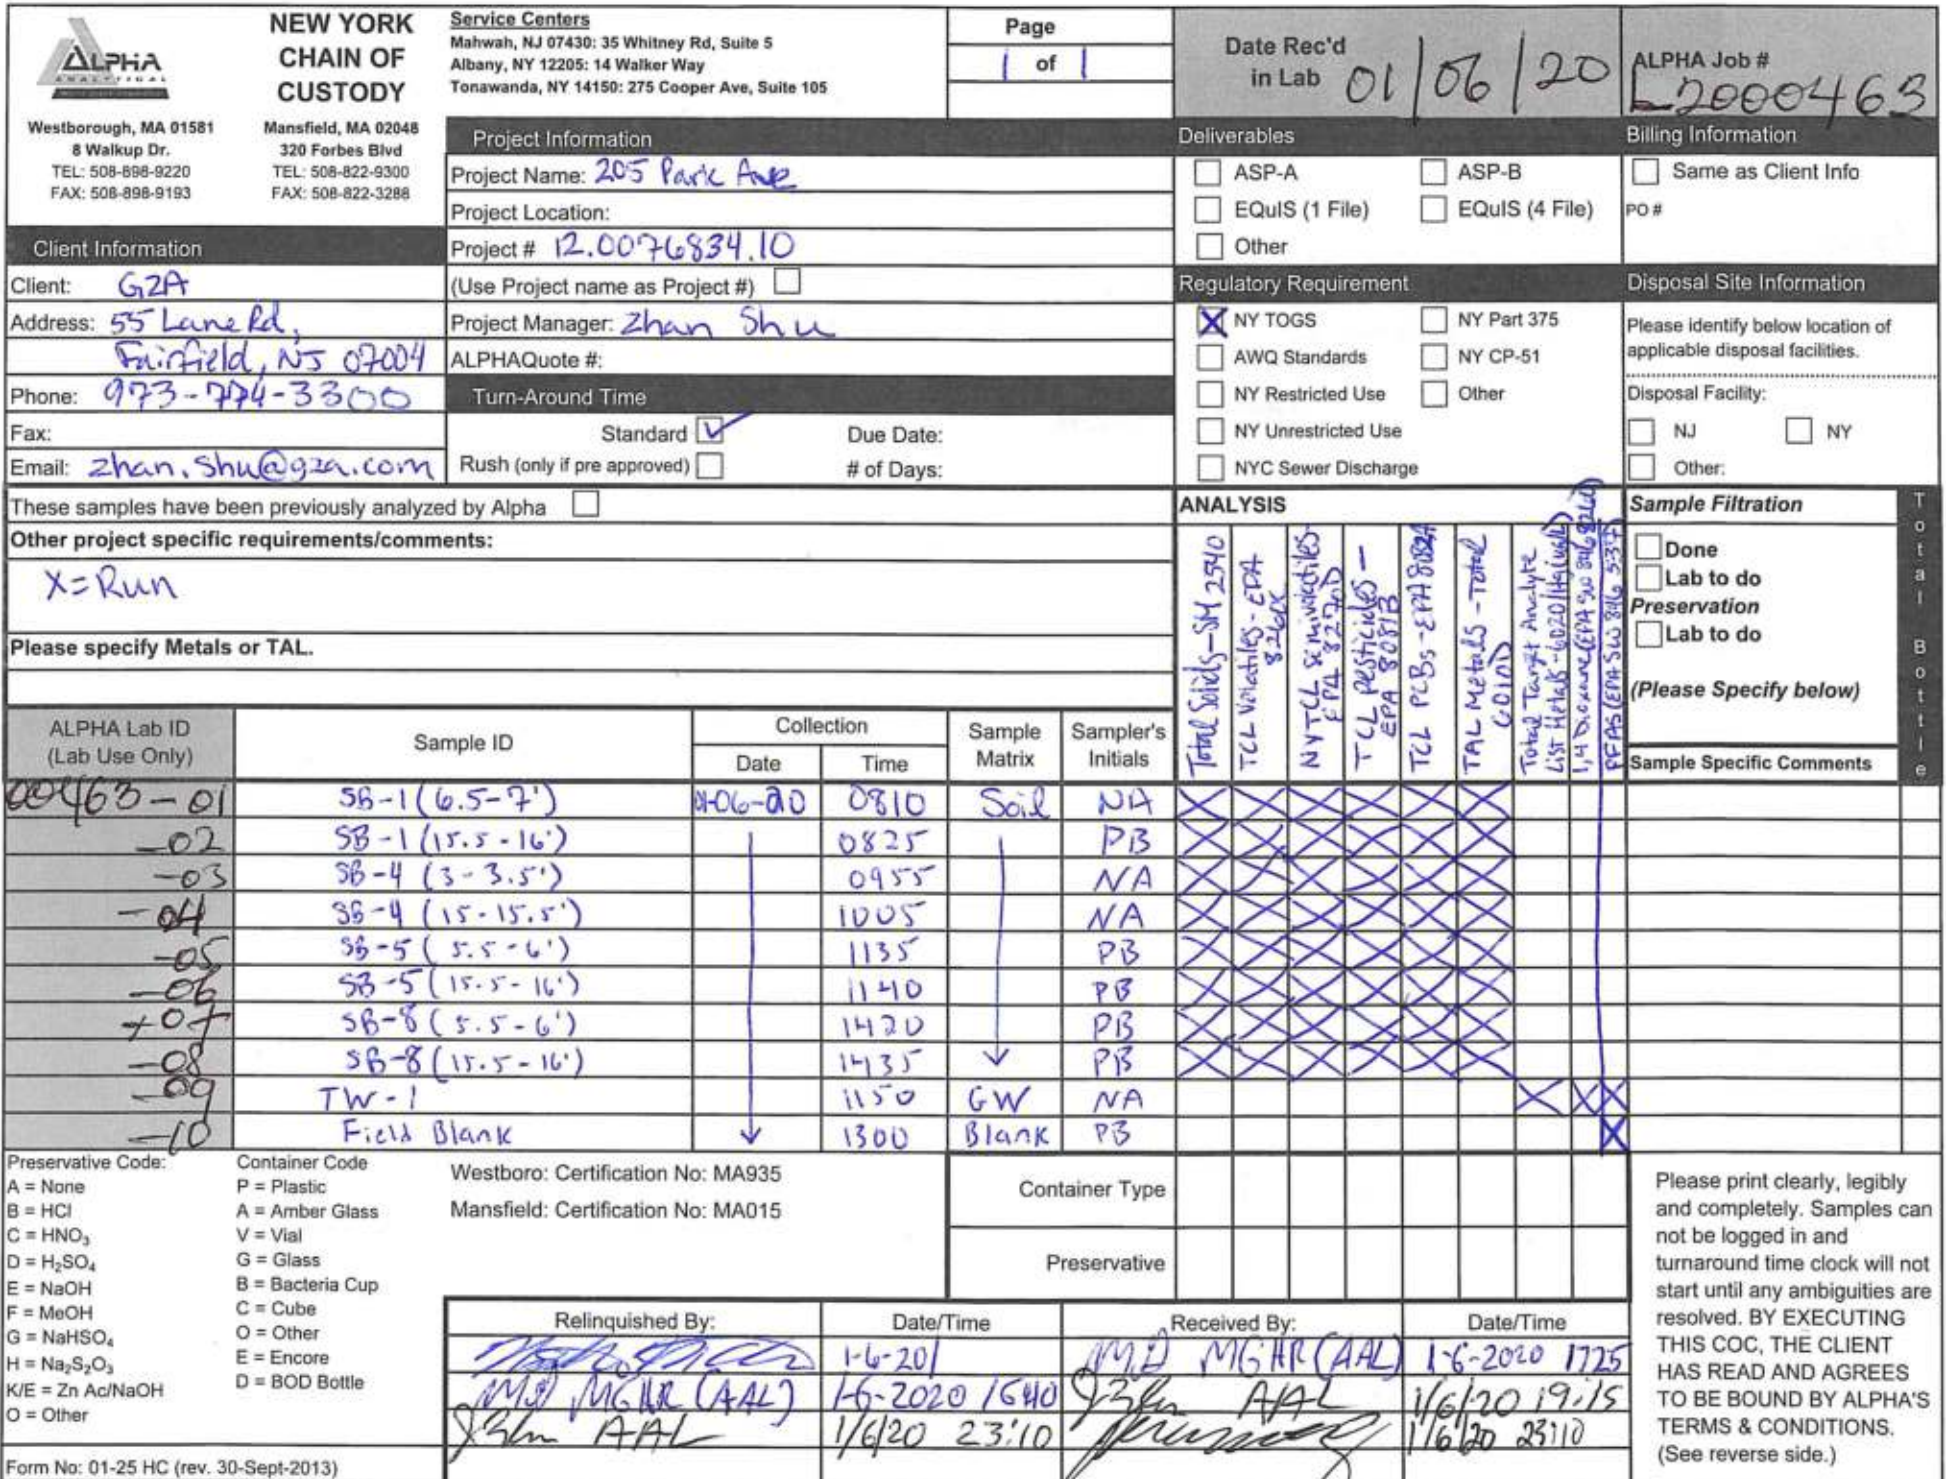 ALPHA
ANALYTICAL
NEW YORK
CHAIN OF
CUSTODY
Westborough, MA 01581
8 Walkup Dr.
TEL: 508-898-9220
FAX: 508-898-9193
Mansfield, MA 02048
320 Forbes Blvd
TEL: 508-822-9300
FAX: 508-822-3288
Service Centers
Mahwah, NJ 07430: 35 Whitney Rd, Suite 5
Albany, NY 12205: 14 Walker Way
Tonawanda, NY 14150: 275 Cooper Ave, Suite 105
Page
1 of 1
Date Rec'd
in Lab 01/06/20
ALPHA Job #
L2000463
Client Information
Client: GZA
Address: 55 Lane Rd,
Fairfield, NJ 07004
Phone: 973-774-3300
Fax:
Email: zhan.shu@gza.com
Project Information
Project Name: 205 Park Ave
Project Location:
Project # 12.0076834.10
(Use Project name as Project #)
Project Manager: Zhan Shu
ALPHAQuote #:
Turn-Around Time
Standard Due Date:
Rush (only if pre approved) # of Days:
Deliverables
ASP-A ASP-B
EQuIS (1 File) EQuIS (4 File)
Other
Regulatory Requirement
X NY TOGS NY Part 375
AWQ Standards NY CP-51
NY Restricted Use Other
NY Unrestricted Use
NYC Sewer Discharge
Billing Information
Same as Client Info
PO #
Disposal Site Information
Please identify below location of
applicable disposal facilities.
Disposal Facility:
NJ NY
Other:
These samples have been previously analyzed by Alpha
Other project specific requirements/comments:
X=Run
Please specify Metals or TAL.
ANALYSIS
Total Solids-SM 2540
TCL Volatiles-EPA 8260C
NYTCL semivolatiles-EPA 8270D
TCL Pesticides-EPA 8081B
TCL PCBs-EPA 8082A
TAL Metals-Total 6010D
Total Target Analyte
List Metals-6020/Hg
1,4 Dioxane (EPA SW 846
PFAS (EPA SW 846 537)
Sample Filtration
Done
Lab to do
Preservation
Lab to do
(Please Specify below)
Sample Specific Comments
Total Bottle
ALPHA Lab ID
(Lab Use Only)
Sample ID
Collection
Date Time
Sample
Matrix
Sampler's
Initials
00463-01 SB-1 (6.5-7') 01-06-20 0810 Soil NA X X X X X X
-02 SB-1 (15.5-16') 0825 PB X X X X X X
-03 SB-4 (3-3.5') 0955 NA X X X X X X
-04 SB-4 (15-15.5') 1005 NA X X X X X X
-05 SB-5 (5.5-6') 1135 PB X X X X X X
-06 SB-5 (15.5-16') 1140 PB X X X X X X
-07 SB-8 (5.5-6') 1420 PB X X X X X X
-08 SB-8 (15.5-16') 1435 PB X X X X X X
-09 TW-1 1150 GW NA X X X
-10 Field Blank 1300 Blank PB X
Preservative Code:
A = None
B = HCl
C = HNO₃
D = H₂SO₄
E = NaOH
F = MeOH
G = NaHSO₄
H = Na₂S₂O₃
K/E = Zn Ac/NaOH
O = Other
Container Code
P = Plastic
A = Amber Glass
V = Vial
G = Glass
B = Bacteria Cup
C = Cube
O = Other
E = Encore
D = BOD Bottle
Westboro: Certification No: MA935
Mansfield: Certification No: MA015
Container Type
Preservative
Relinquished By: Date/Time Received By: Date/Time
1-6-20 (AAL) 1-6-2020 1725
(AAL) 1-6-2020 1640 AAL 1/6/20 19:15
AAL 1/6/20 23:10 1/6/20 23:10
Please print clearly, legibly
and completely. Samples can
not be logged in and
turnaround time clock will not
start until any ambiguities are
resolved. BY EXECUTING
THIS COC, THE CLIENT
HAS READ AND AGREES
TO BE BOUND BY ALPHA'S
TERMS & CONDITIONS.
(See reverse side.)
Form No: 01-25 HC (rev. 30-Sept-2013)